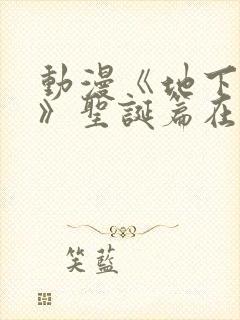 動漫《地下
》聖誕篇在
笑藍